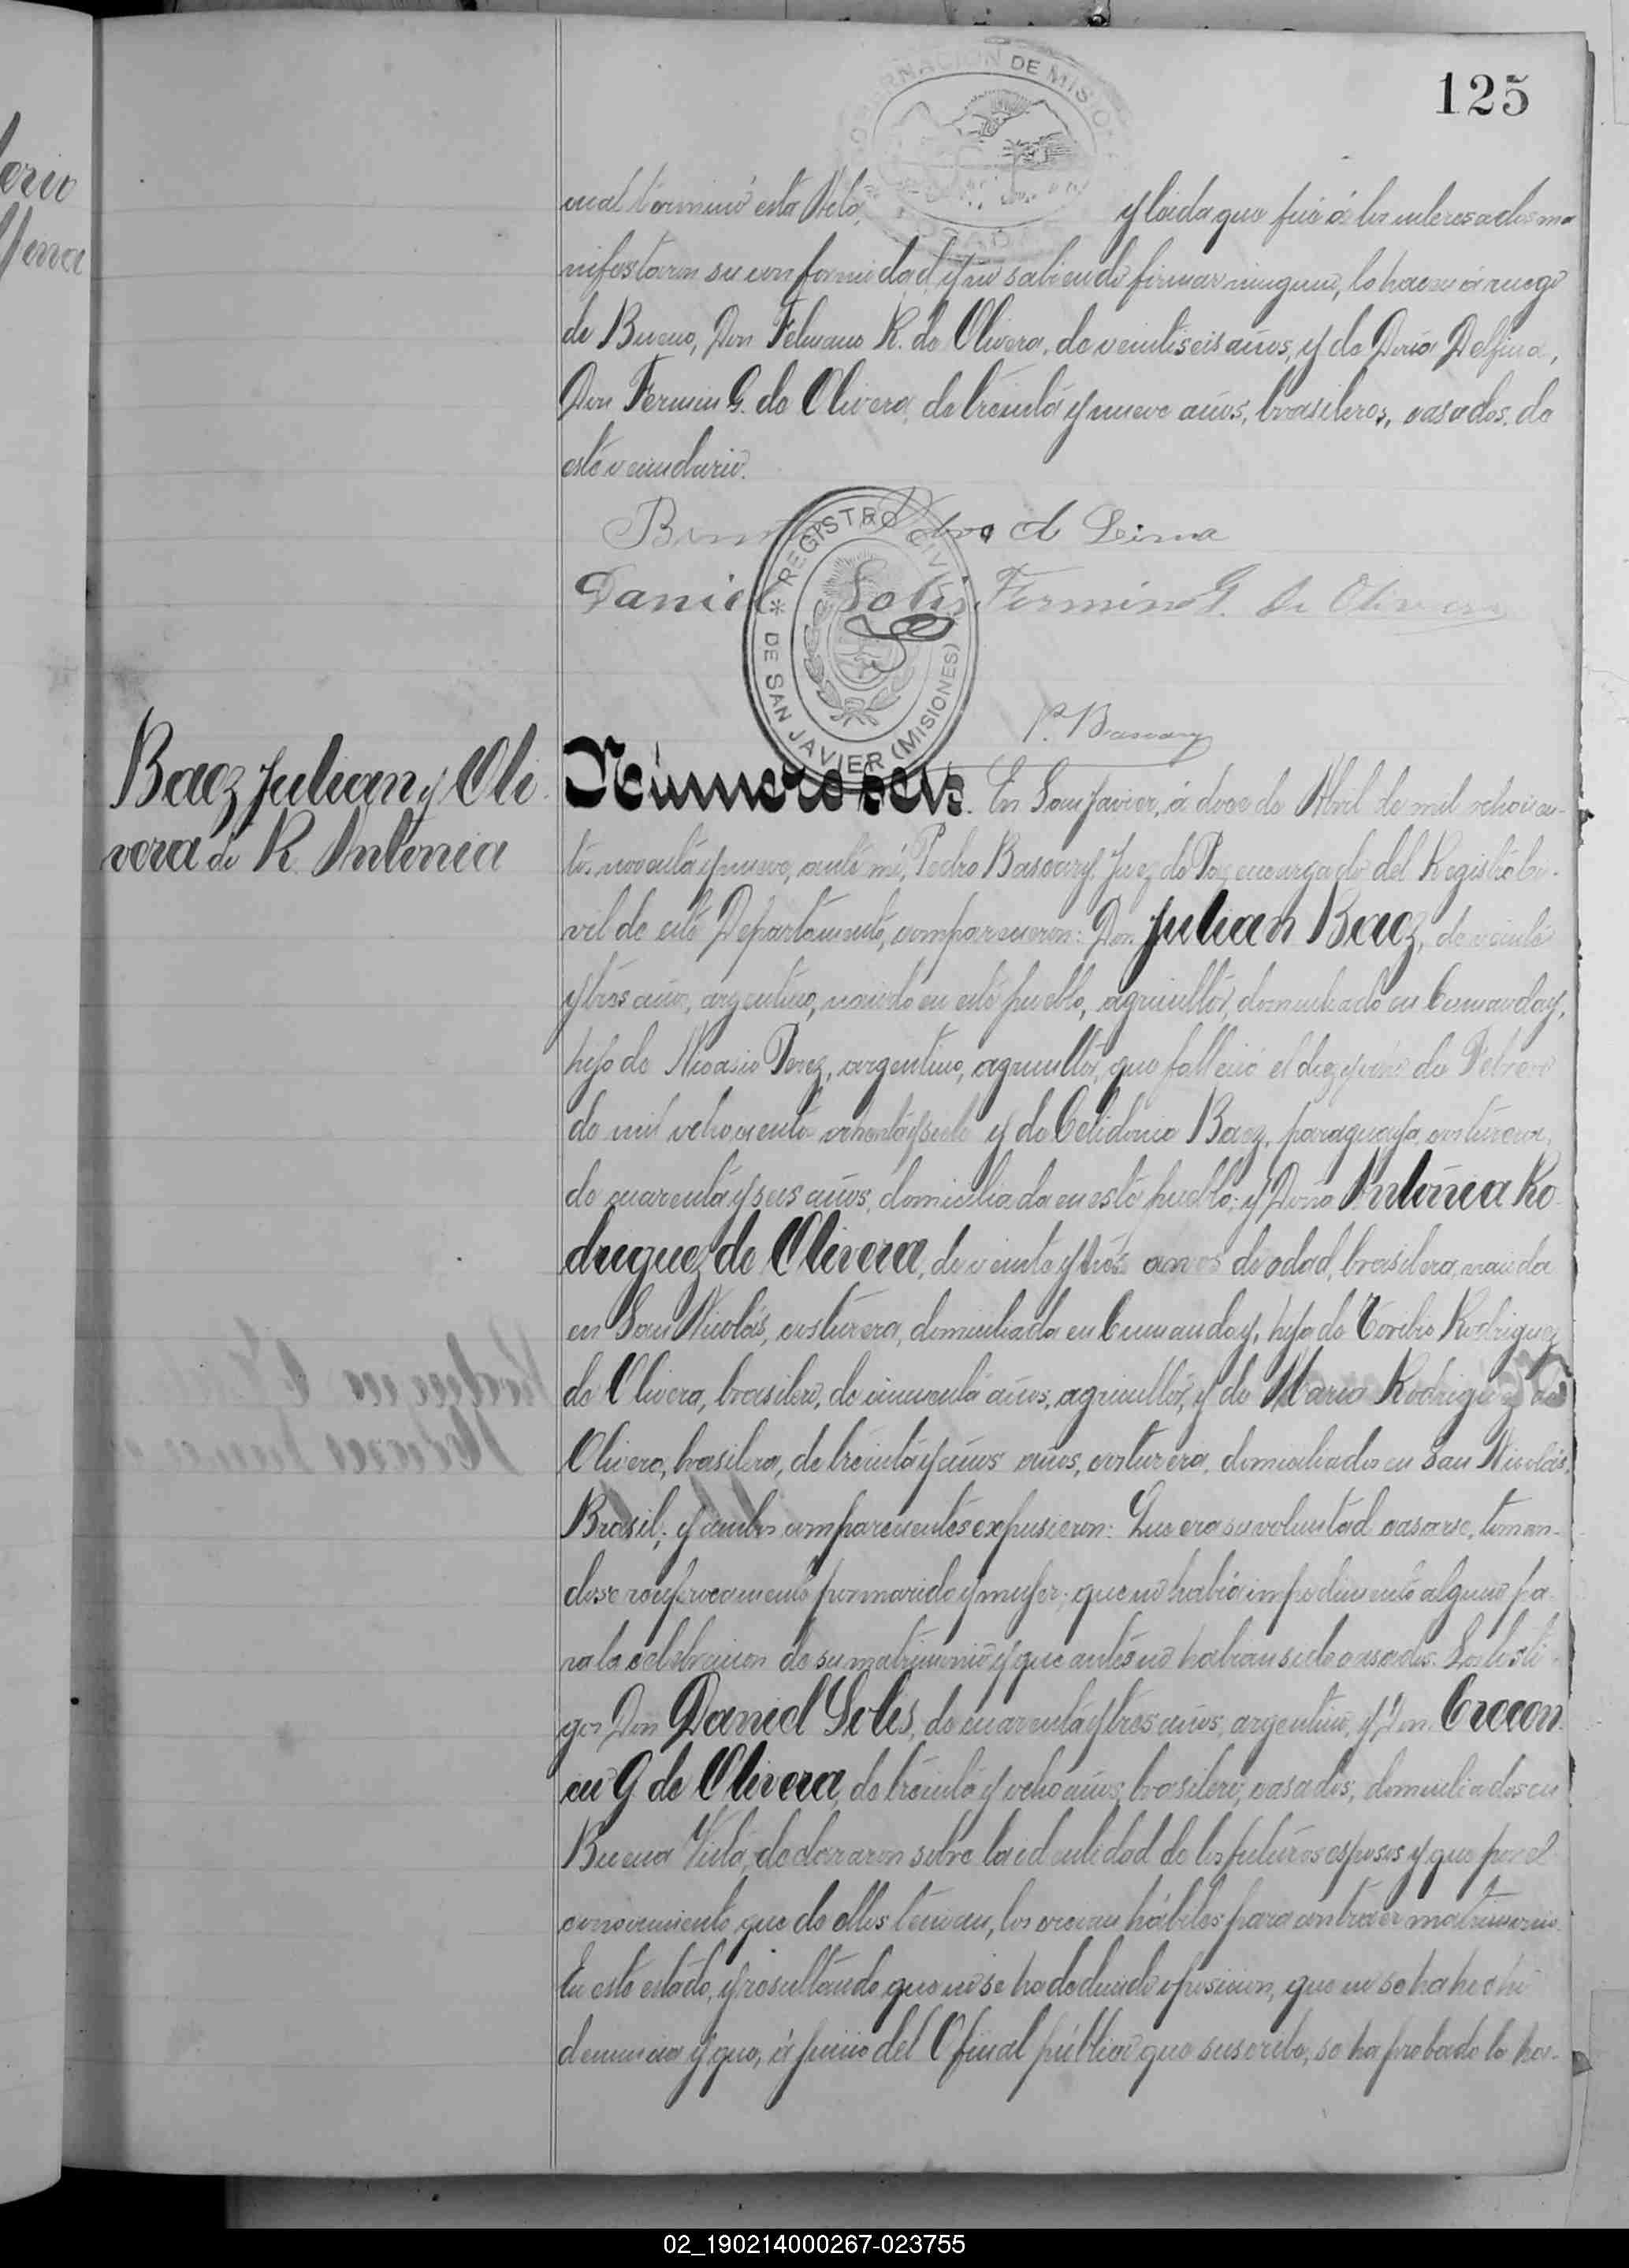 125
GOBERNACION DE MISIO
cual terminó esta Acta, y leida que fué á los interesados ma
nifestaron su conformidad, y no sabiendo firmar ninguno, lo hacen á ruego
de Bueno, Don Feliciano R. de Olivera, de veintiseis años, y de Doña Delfina,
Don Fermin G. de Olivera, de treinta y nueve años, brasileros, casados, de
este vecindario.
de Lima
Daniel Solis Fermino G. de Olivera
REGISTRO CIVIL DE SAN JAVIER (MISIONES)
P. Bascary
Baez Julian y Oli-
vera de R. Antonia
Número seis. En San Javier, á doce de Abril de mil ochocien-
tos noventa y nueve, ante mí, Pedro Bascary, Juez de Paz encargado del Registro Ci-
vil de este Departamento, comparecieron: Don Julian Baez, de veinte
y tres años, argentino, nacido en este pueblo, agricultor, domiciliado en Cumanday,
hijo de Nicasio Perez, argentino, agricultor, que falleció el diez y seis de Febrero
de mil ochocientos ochenta y siete y de Celidonia Baez, paraguaya, costurera,
de cuarenta y seis años, domiciliada en este pueblo; y Doña Antonia Ro-
driguez de Olivera, de veinte y tres años de edad, brasilera, nacida
en San Nicolás, costurera, domiciliada en Cumanday, hija de Toribio Rodriguez
de Olivera, brasilero, de cincuenta años, agricultor, y de Maria Rodriguez de
Olivera, brasilera, de treinta y cinco años, costurera, domiciliados en San Nicolás,
Brasil; y ambos comparecientes expusieron: Que era su voluntad casarse, toman-
dose recíprocamente por marido y mujer; que no había impedimento alguno pa-
ra la celebracion de su matrimonio y que antes no habian sido casados. Los testi-
gos Don Daniel Solis, de cuarenta y tres años, argentino, y Don Crecen-
cio G de Olivera, de treinta y ocho años, brasilero, casados, domiciliados en
Buena Vista, declararon sobre la identidad de los futuros esposos y que por el
conocimiento que de ellos tenian, los creian hábiles para contraer matrimonio.
En este estado, y resultando que no se ha deducido oposicion, que no se ha hecho
denuncia y que, á juicio del Oficial público que suscribe, se ha probado lo ha-
02_190214000267-023755